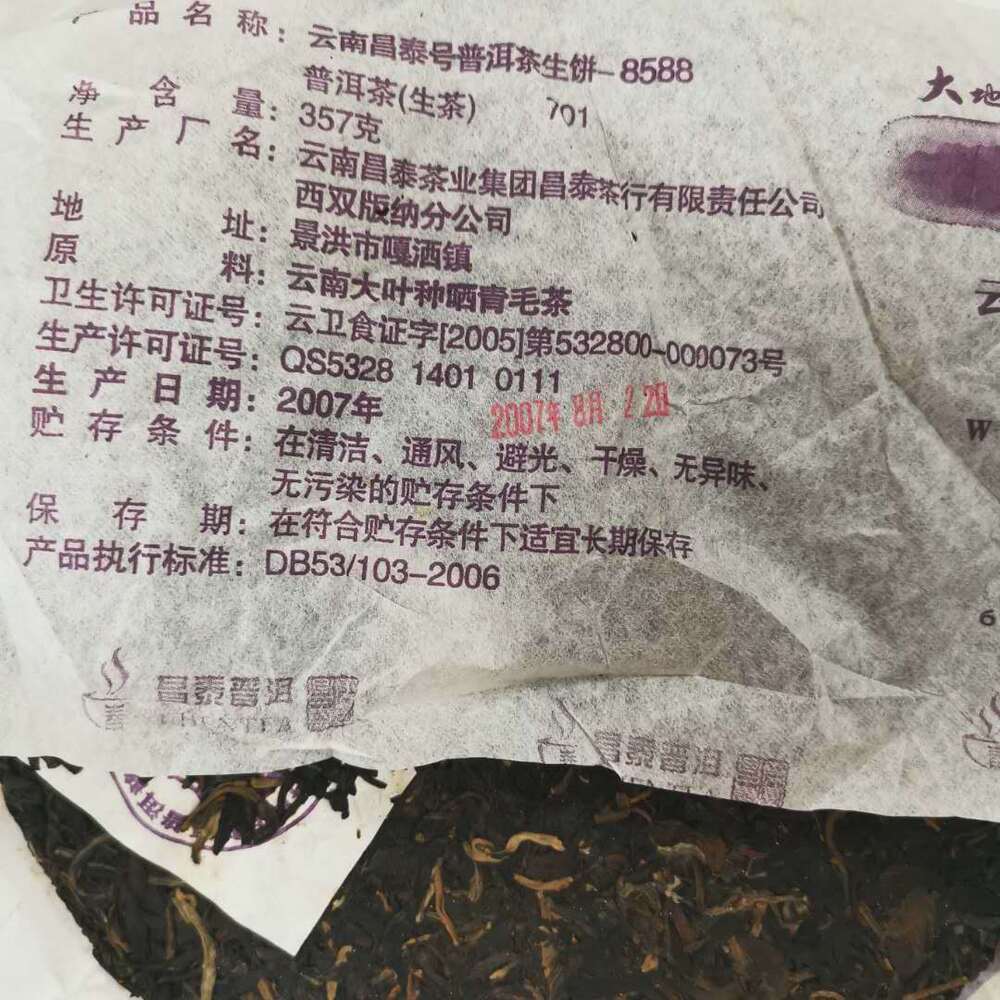 品名称：云南昌泰号普洱茶生饼-8588
普洱茶(生茶) 701
净含量：357克
生产厂名：云南昌泰茶业集团昌泰茶行有限责任公司
西双版纳分公司
地址：景洪市嘎洒镇
原料：云南大叶种晒青毛茶
卫生许可证号：云卫食证字[2005]第532800-000073号
生产许可证号：QS5328 1401 0111
生产日期：2007年 2007年 8月 2 2日
贮存条件：在清洁、通风、避光、干燥、无异味、
无污染的贮存条件下
保存期：在符合贮存条件下适宜长期保存
产品执行标准：DB53/103-2006
大地
云
W
6
昌泰普洱
昌泰普洱